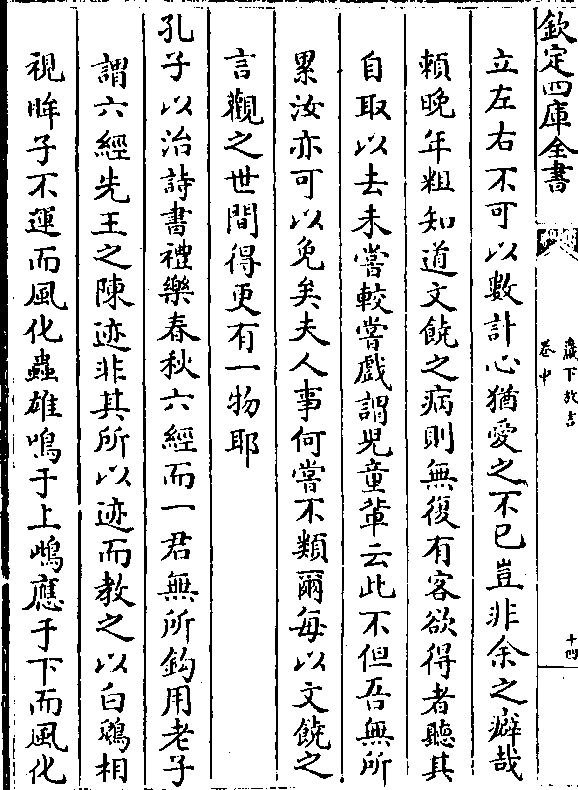 欽定四庫全書
巖下放言
卷中
十四
立左右不可以數計心猶愛之不已豈非余之癖哉
賴晚年粗知道文饒之病則無復有客欲得者聽其
自取以去未嘗較嘗戲謂兒童輩云此不但吾無所
累汝亦可以免矣夫人事何嘗不類爾每以文饒之
言觀之世間得更有一物耶
孔子以治詩書禮樂春秋六經而一君無所鈎用老子
謂六經先王之陳迹非其所以迹而教之以白鶂相
視眸子不運而風化蟲雄鳴于上鴟應于下而風化